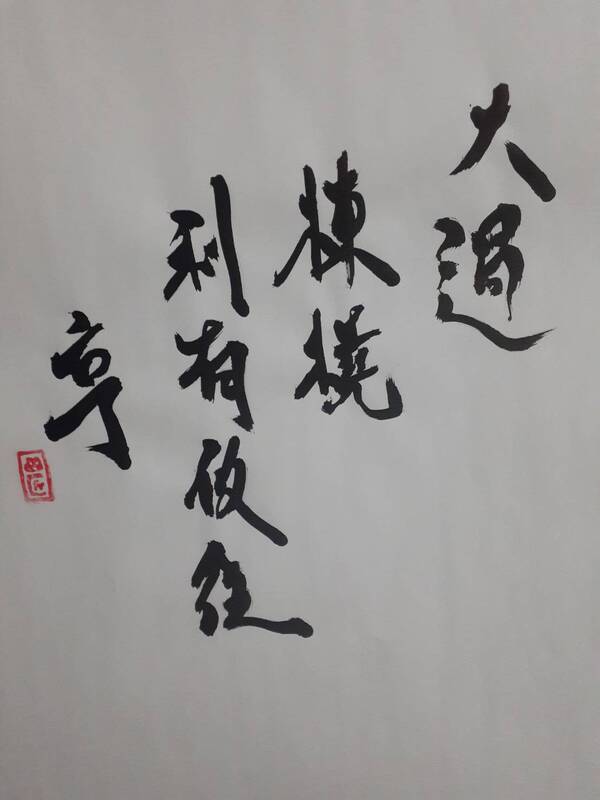 大過
棟橈
利有攸往
亨